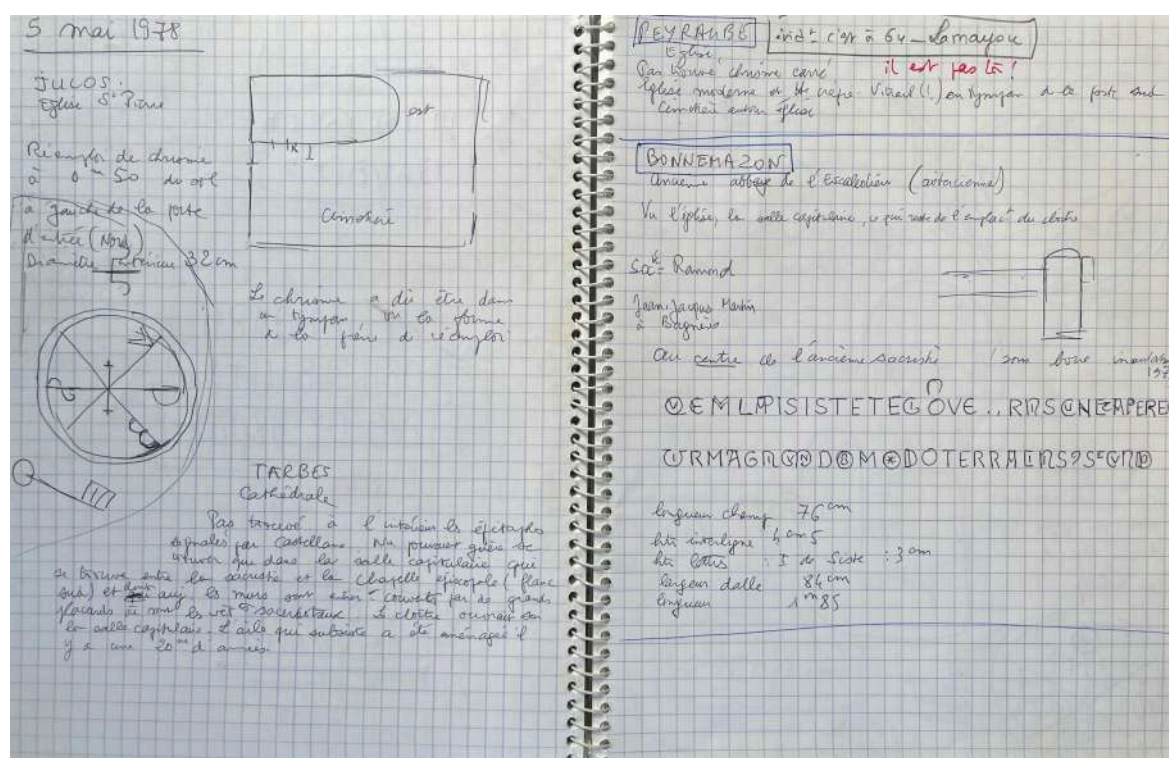 5 mai 1978
JULOS.
Eglise St Pierre
est
Réemploi de chrisme
à 0m 50 du sol
à gauche de la porte
d'entrée (Nord)
Diamètre extérieur 32 cm
Cimetière
Le chrisme a dû être dans
un tympan vu la forme
de la pierre de réemploi
TARBES
Cathédrale
Pas trouvé à l'intérieur les épitaphes
signalées par Castellane. Ne pouvait guère se
trouver que dans la salle capitulaire qui
se trouve entre la sacristie et la chapelle épiscopale (flanc
sud) et dont les murs sont couverts par de grands
placards où sont les vêt ts sacerdotaux. Le cloître ouvrait sur
la salle capitulaire. L'aile qui subsiste a été aménagée il
y a une 20ne d'années.
PEYRAUBE ind c'est à 64 - Lamayou
Eglise
Pas trouvé chrisme carré il est pas là !
Eglise moderne Vitrail (!) en tympan de porte sud
Cimetière autour église
BONNEMAZON
Ancienne abbaye de l'Escaledieu (cistercienne)
Vu l'église, la salle capitulaire, ce qui reste de l'emplact du cloître
Socté Ramond
Jean-Jacques Martin
à Bagnères
Au centre de l'ancienne sacristie
longueur champ 76 cm
htr interligne 4 cm 5
htr lettres : I de Siste : 3 cm
largeur dalle 84 cm
longueur 1m 85